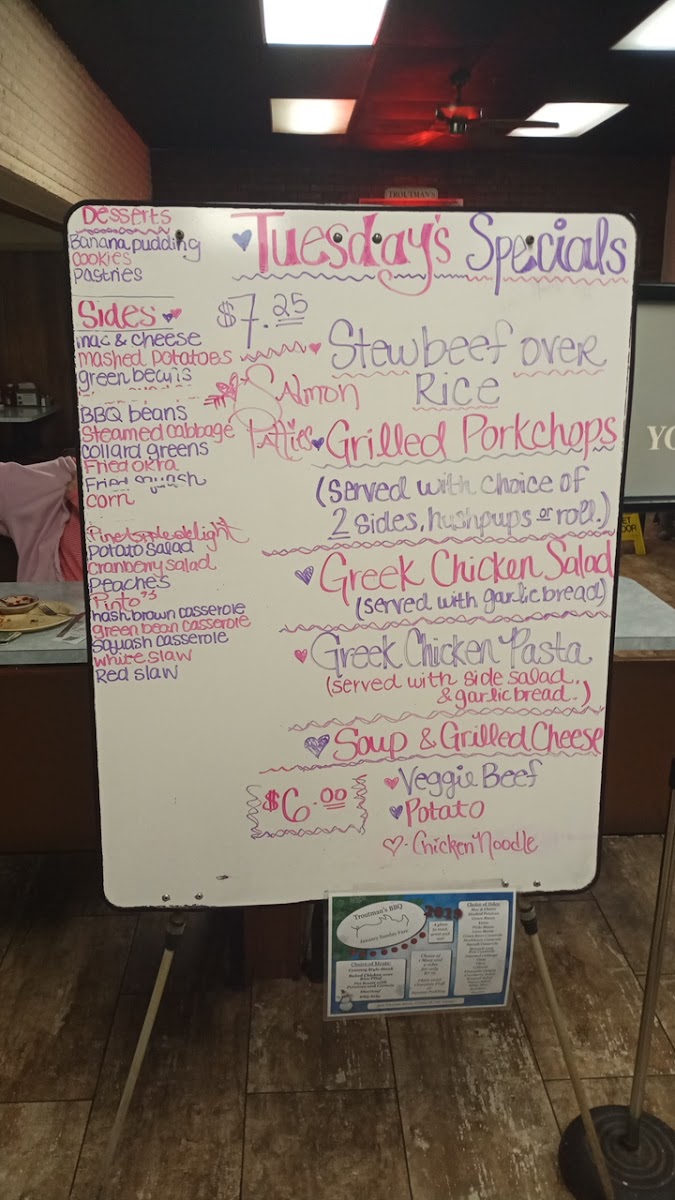 TROUTMAN'S
Desserts
Banana pudding
cookies
Pastries
Sides
mac & cheese
mashed potatoes
green beans
BBQ beans
Steamed cabbage
collard greens
Fried okra
Fried squash
corn
Pineapple delight
Potato salad
cranberry salad
Peaches
Pinto's
hash brown casserole
green bean casserole
Squash casserole
white slaw
Red slaw
Tuesday's Specials
$7.25
Stewbeef over
Rice
Salmon
Patties
Grilled Porkchops
(Served with choice of
2 sides, hushpups or roll.)
Greek Chicken Salad
(served with garlic bread)
Greek Chicken Pasta
(served with side salad,
& garlic bread.)
Soup & Grilled Cheese
$6.00
Veggie Beef
Potato
Chicken Noodle
Troutman's BBQ
January Sunday Fare
2019
Choice of Meats:
Choice of Sides:
YO